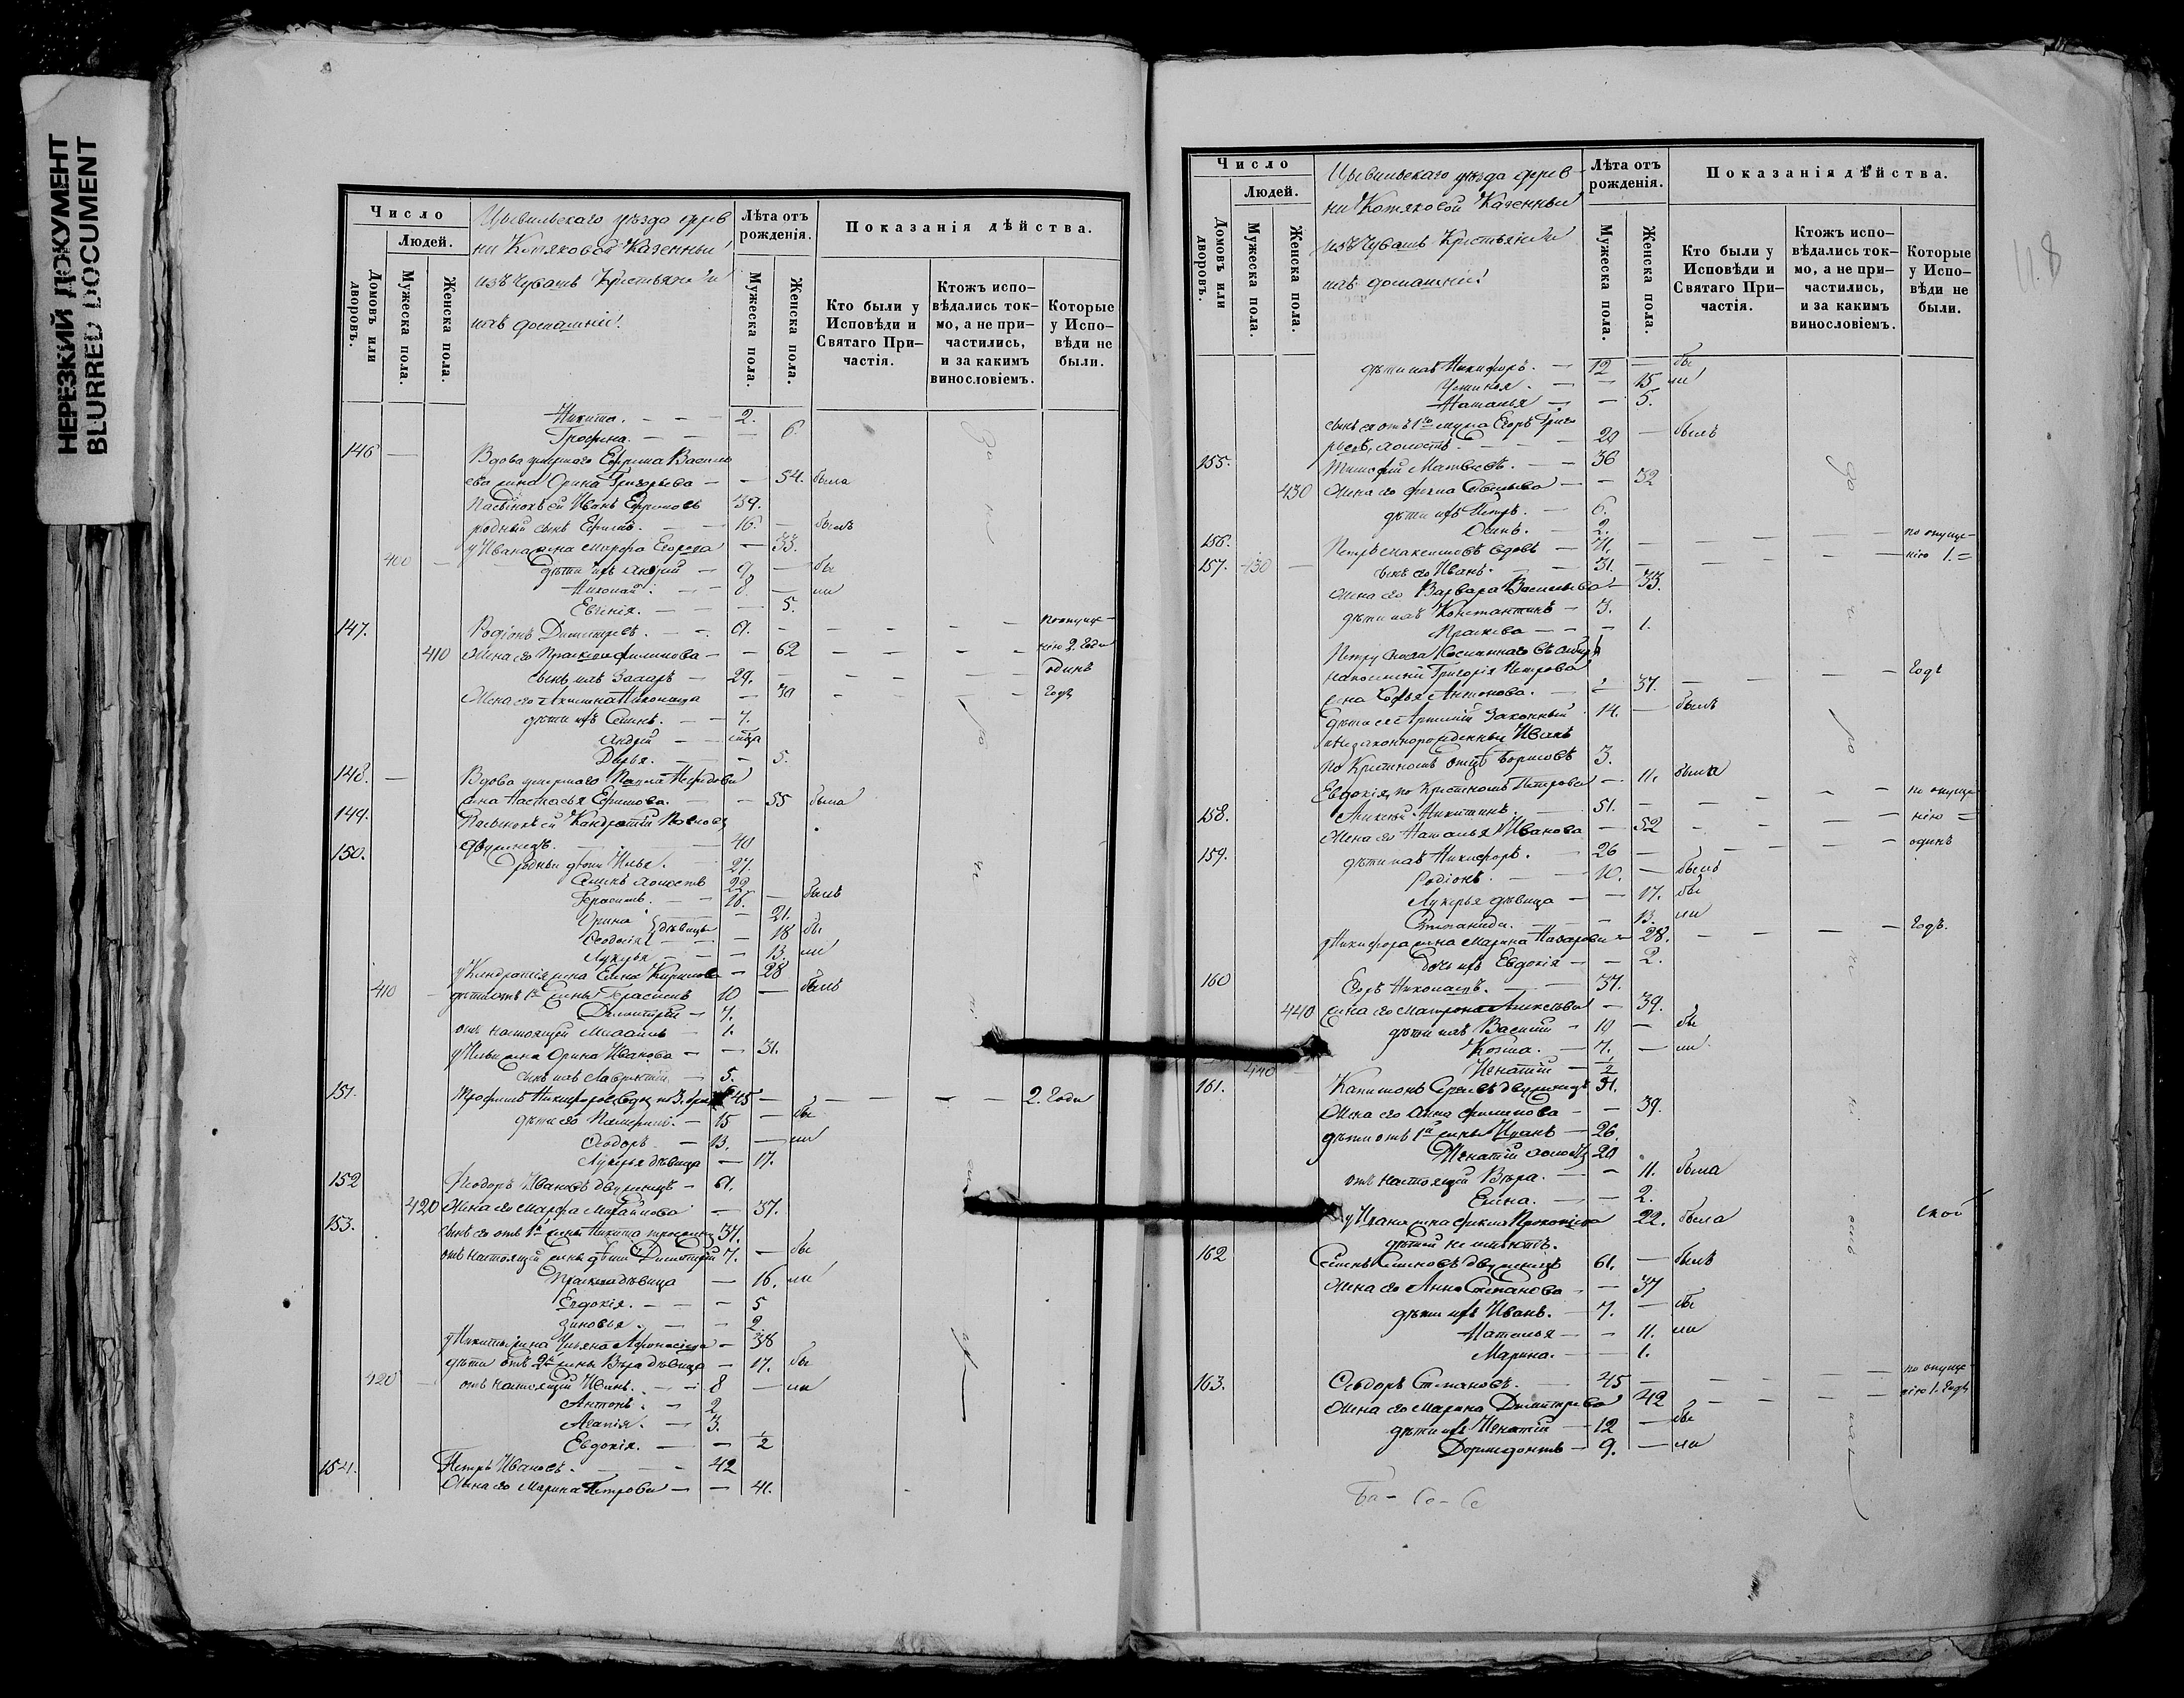 НЕРЕЗКИЙ ДОКУМЕНТ
BLURRED DOCUMENT
Число
Людей.
Домовъ или дворовъ.
Мужеска пола.
Женска пола.
Цывильскаго уѣзда дерев
ни Котяковой Казенныи
изъ Чувашъ Крестьяне и
ихъ домашніи.
Лѣта отъ рожденія.
Мужеска пола.
Женска пола.
Показанія дѣйства.
Кто были у Исповѣди и Святаго При-частія.
Ктожъ испо-вѣдались ток-мо, а не при-частились, и за какимъ винословіемъ.
Которые у Испо-вѣди не были.
Никита. 2.
6.
146 Вдова умершаго Ефрема Василь
ева жена Орина Григорьева 54. была
Пасынокъ ей Иванъ Ефремовъ 39.
родный сынъ Ефимъ. 16. былъ
у Ивана жена Марфа Егорова 33.
400 дѣти ихъ Андрей 9. бы
Николай. 8. ли
Евгенія. 5.
147. Родіонъ Димитріевъ. 61. по опуще-
410 Жена его Прасковья Филипова 62 нію 2. года
сынъ ихъ Захаръ 29. одинъ
Жена его Акилина Николаева 30 годъ
дѣти ихъ Семенъ. 7.
Андрей
Дарья. 5.
148. Вдова умершаго Павла Нефедова
жена Настасья Ефимова. 55 была
149. Пасынокъ ей Кандратій Павловъ
двуженецъ. 40
150. родныи дѣти Илья. 27.
Семенъ холостъ 22.
Герасимъ. 16. былъ
Орина дѣвицы 21.
Ѳеодосія 18 бы
Лукерья 13. ли
у Кандратія жена Елена Кирилова 28
410 дѣти отъ 1й жены Герасимъ 10 былъ
Димитрій 7.
отъ настоящей Михаилъ 1.
у Ильи жена Орина Иванова 31.
сынъ ихъ Лаврентій 5.
151. Трофимъ Никифоровъ 45 2. года
дѣти его 15 бы
Ѳеодоръ 13. ли
Лукерья дѣвица 17.
152 Ѳеодоръ Ивановъ двуженецъ 61.
420 Жена его Марфа Михайлова 37.
153. сынъ его отъ 1й жены Никита троеженецъ 37.
отъ настоящей жены дѣти Димитрій 7. бы
дѣвица 16. ли
Евдокія. 5
Зиновья 2.
у Никиты жена Ульяна Афонасьева 38
дѣти отъ 2й жены Вѣра дѣвица 17. бы
420 отъ настоящей Иванъ. 8 ли
Антонъ. 2
Агапія. 3.
Евдокія. 1/2
154. Петръ Ивановъ. 42
Жена его Марина Петрова 41.
Число
Людей.
Домовъ или дворовъ.
Мужеска пола.
Женска пола.
Цывильскаго уѣзда дерев
ни Котяковой Казенныи
изъ Чувашъ Крестьяне и
ихъ домашніи.
Лѣта отъ рожденія.
Мужеска пола.
Женска пола.
Показанія дѣйства.
Кто были у Исповѣди и Святаго При-частія.
Ктожъ испо-вѣдались ток-мо, а не при-частились, и за какимъ винословіемъ.
Которые у Испо-вѣди не были.
дѣти ихъ Никифоръ. 12 бы
Устинья. 15 ли
Наталья 5.
сынъ ея отъ 1го мужа Егоръ Григо
рьевъ, холостъ. 20 былъ
155. Тимофей Матвѣевъ. 36
430 Жена его Фекла Савельева 32
дѣти ихъ Петръ. 6.
Осипъ. 2.
156. Петръ Максимовъ вдовъ 71. по опуще-
157. 430 сынъ его Иванъ. 31. нію 1. =
Жена его Варвара Васильева 33.
дѣти ихъ Константинъ 3.
1.
на поселеніи Григорія Петрова
жена Софья Антонова. 37. годъ
дѣти ея Артемій законный 14. былъ
и незаконнорожденныи Иванъ
по крестномъ отцѣ Борисовъ 3.
Евдокія, по крестномъ Петрова 11. была
158. Алексѣй Никитинъ. 51. по опуще
Жена его Наталья Иванова 52 нію =
159. дѣти ихъ Никифоръ. 26 одинъ
Родіонъ. 10. былъ
Лукерья дѣвица 17. бы
Степанида. 13. ли
у Никифора жена Марина Назарова 28. годъ.
дочь ихъ Евдокія 2.
160 Егоръ Николаевъ. 37.
440 жена его Матрона Алексѣева 39.
дѣти ихъ Василій 10 бы
Козма. 7. ли
Игнатій 1/2
161. 440 Капитонъ Сергѣевъ двуженецъ 51.
Жена его Анна Филипова 39.
дѣти отъ 1й жены Иванъ 26.
Игнатій холостъ 20
отъ настоящей Вѣра. 11. была
Елена. 2.
у Ивана жена Фекла Прокопьева 22. была
дѣтей не имѣютъ.
162 Семенъ Семеновъ двуженецъ 61. былъ
Жена его Анна Степанова 37
дѣти ихъ Иванъ. 7. бы
Наталья 11. ли
Марина. 1.
163. Ѳеодоръ Степановъ. 45 по опуще-
Жена его Марина Димитріева 42 нію 1. годъ
дѣти ихъ Игнатій 12 бы
Доримедонтъ 9. ли